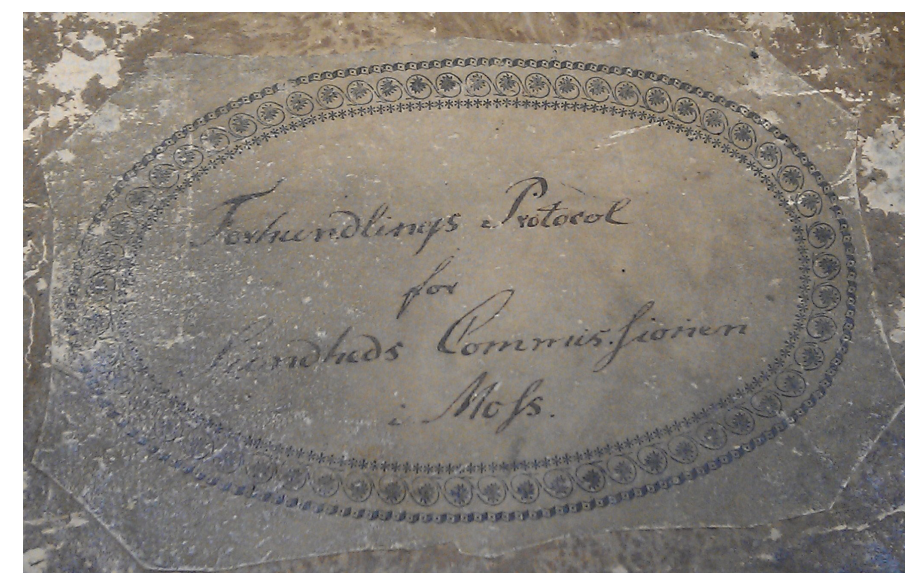 Forhandlings Protocol
for
Sundheds Commissionen
i Moss.